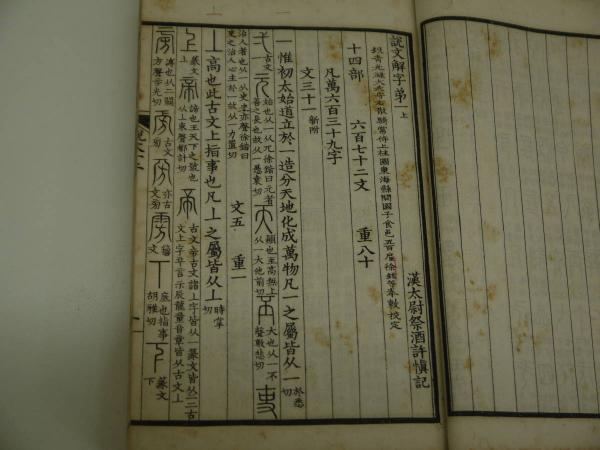 說文解字弟一上
漢太尉祭酒許慎記
銀青光祿大夫守右散騎常侍上柱國東海縣開國子食邑五百戶臣徐鉉等奉敕校定
十四部 六百七十二文 重八十
凡萬六百三十九字
文三十一 新附
一 惟初太始道立於一造分天地化成萬物凡一之屬皆从一 於悉切
弌 古文一 元 始也从一从兀徐鍇曰元者善之長也故从一愚袁切 天 顚也至高無上从一大他前切 丕 大也从一不聲敷悲切 吏
治人者也从一从史史亦聲徐鍇曰吏之治人心主於一故从一力置切
文五 重一
丄 高也此古文上指事也凡丄之屬皆从丄 時掌切
上 篆文丄 帝 諦也王天下之號也从丄朿聲都計切 帝 古文帝古文諸丄字皆从一篆文皆从二二古文上字䇂言示辰龍童音章皆从古文丄
旁 溥也从二闕方聲步光切 古文旁 亦古文旁 籀文 丅 底也指事胡雅切 下 篆文丅